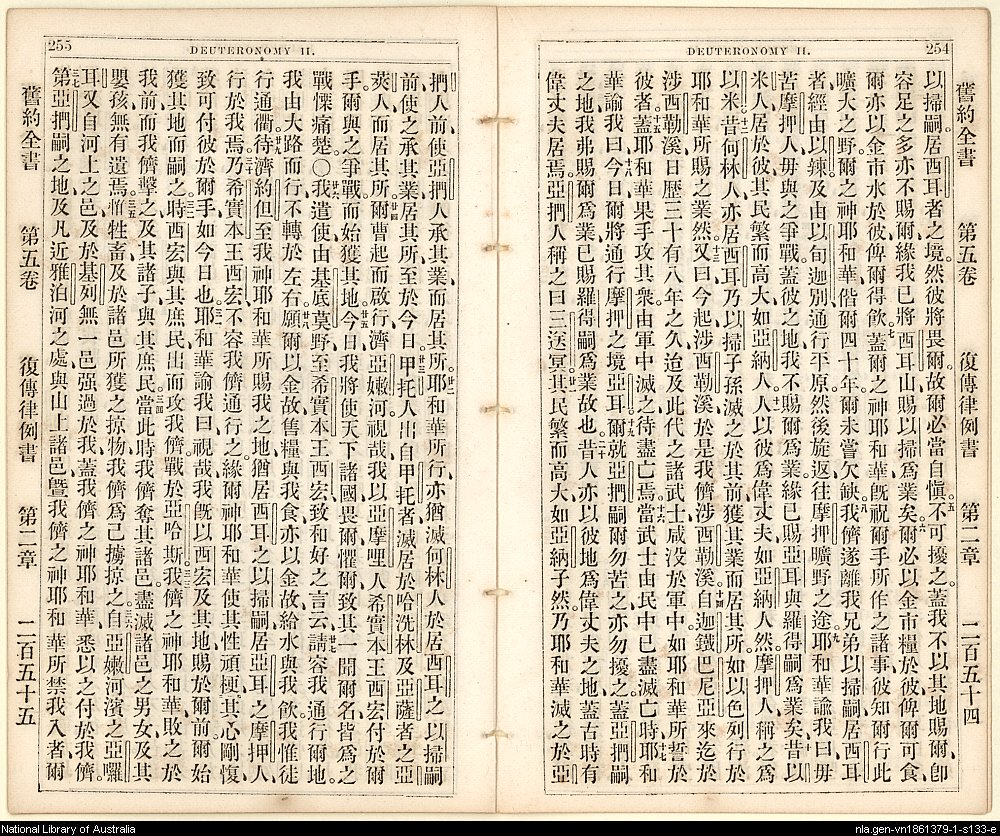 254
DEUTERONOMY II.
舊約全書 第五卷 復傳律例書 第二章 二百五十四
以掃嗣居西耳者之境、然彼將畏爾、故爾必當自愼。五不可擾之、蓋我不以其地賜爾、卽
容足之多、亦不賜爾、緣我已將西耳山賜以掃爲業矣。六爾必以金市糧於彼、俾爾可食、
爾亦以金市水於彼、俾爾得飲。七蓋爾之神耶和華旣祝爾手所作之諸事、彼知爾行此
曠大之野、爾之神耶和華偕爾四十年、爾未嘗欠缺。八我儕遂離我兄弟以掃嗣居西耳
者、經由以辣、及由以旬迦別、通行平原、然後旋返往摩押曠野之途。九耶和華諭我曰、毋
苦摩押人、毋與之爭戰、蓋彼之地我不賜爾爲業、緣已賜亞耳與羅得嗣爲業矣。十昔以
米人居於彼、其民繁而高大、如亞納人。十一人以彼爲偉丈夫、如亞納人然、摩押人稱之爲
以米。十二昔何林人亦居西耳、乃以掃子孫滅之於其前、獲其業而居其所、如以色列行於
耶和華所賜之業然。十三又曰、今起涉西勒溪、於是我儕涉西勒溪。十四自迦鐵巴尼亞來、迄於
涉西勒溪日、歷三十有八年之久、迨及此代之諸武士咸沒於軍中、如耶和華所誓於
彼者。十五蓋耶和華果手攻其衆、由軍中滅之、待盡亡焉。十六當武士由民中已盡滅亡時、十七耶和
華諭我曰、十八今日爾將通行摩押之境亞耳。十九爾就亞捫嗣、爾勿苦之、亦勿擾之、蓋亞捫嗣
之地、我弗賜爾爲業、已賜羅得嗣爲業故也。二十昔人亦以彼地爲偉丈夫之地、蓋古時有
偉丈夫居焉、亞捫人稱之曰三送冥。廿一其民繁而高大、如亞納子然、乃耶和華滅之於亞
255
DEUTERONOMY II.
捫人前、使亞捫人承其業而居其所。廿二耶和華所行、亦猶滅何林人於居西耳之以掃嗣
前、使之承其業、居其所、至於今日。廿三甲托人出自甲托者、滅居於哈洗林及亞薩者之亞
莢人、而居其所。廿四爾曹起而啟行、濟亞嫩河、視哉、我以亞摩哩人希實本王西宏付於爾
手、爾與之爭戰、而始獲其地。廿五今日我將使天下諸國畏爾懼爾、致其一聞爾名、皆爲之
戰慄痛楚。〇廿六我遣使由基底莫野至希實本王西宏、致和好之言云、廿七請容我通行爾地、
我由大路而行、不轉於左右、廿八願爾以金故售糧與我食、亦以金故給水與我飲、我惟徒
行通衢、廿九待濟約但、至我神耶和華所賜我之地、猶居西耳之以掃嗣、居亞耳之摩押人、
行於我焉。三十乃希實本王西宏不容我儕通行之、緣爾神耶和華使其性頑梗、其心剛愎、
致可付彼於爾手、如今日也。三一耶和華諭我曰、視哉、我旣以西宏及其地賜於爾前、爾始
獲其地而嗣之。三二時西宏與其庶民出而攻我儕、戰於亞哈斯。三三我儕之神耶和華敗之於
我前、而我儕擊之及其諸子與其庶民。三四當此時、我儕奪其諸邑、盡滅諸邑之男女及其
嬰孩、無有遺焉。三五惟牲畜及於諸邑所獲之掠物、我儕爲己擄掠之。三六自亞嫩河濱之亞囉
耳、又自河上之邑、及於基列、無一邑强過於我、蓋我儕之神耶和華悉以之付於我儕。
三七第亞捫嗣之地、及凡近雅泊河之處、與山上諸邑、曁我儕之神耶和華所禁我入者、爾
舊約全書 第五卷 復傳律例書 第二章 二百五十五
National Library of Australia
nla.gen-vn1861379-1-s133-e